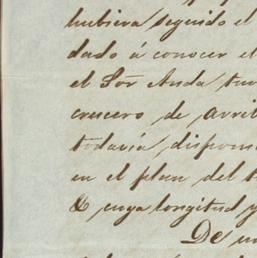 hubiera seguido el
dado á conocer el
el Sōr Anda tuv
crucero de arrib
todavía, dispon
en el plan del t
& cuya longitud y
De un